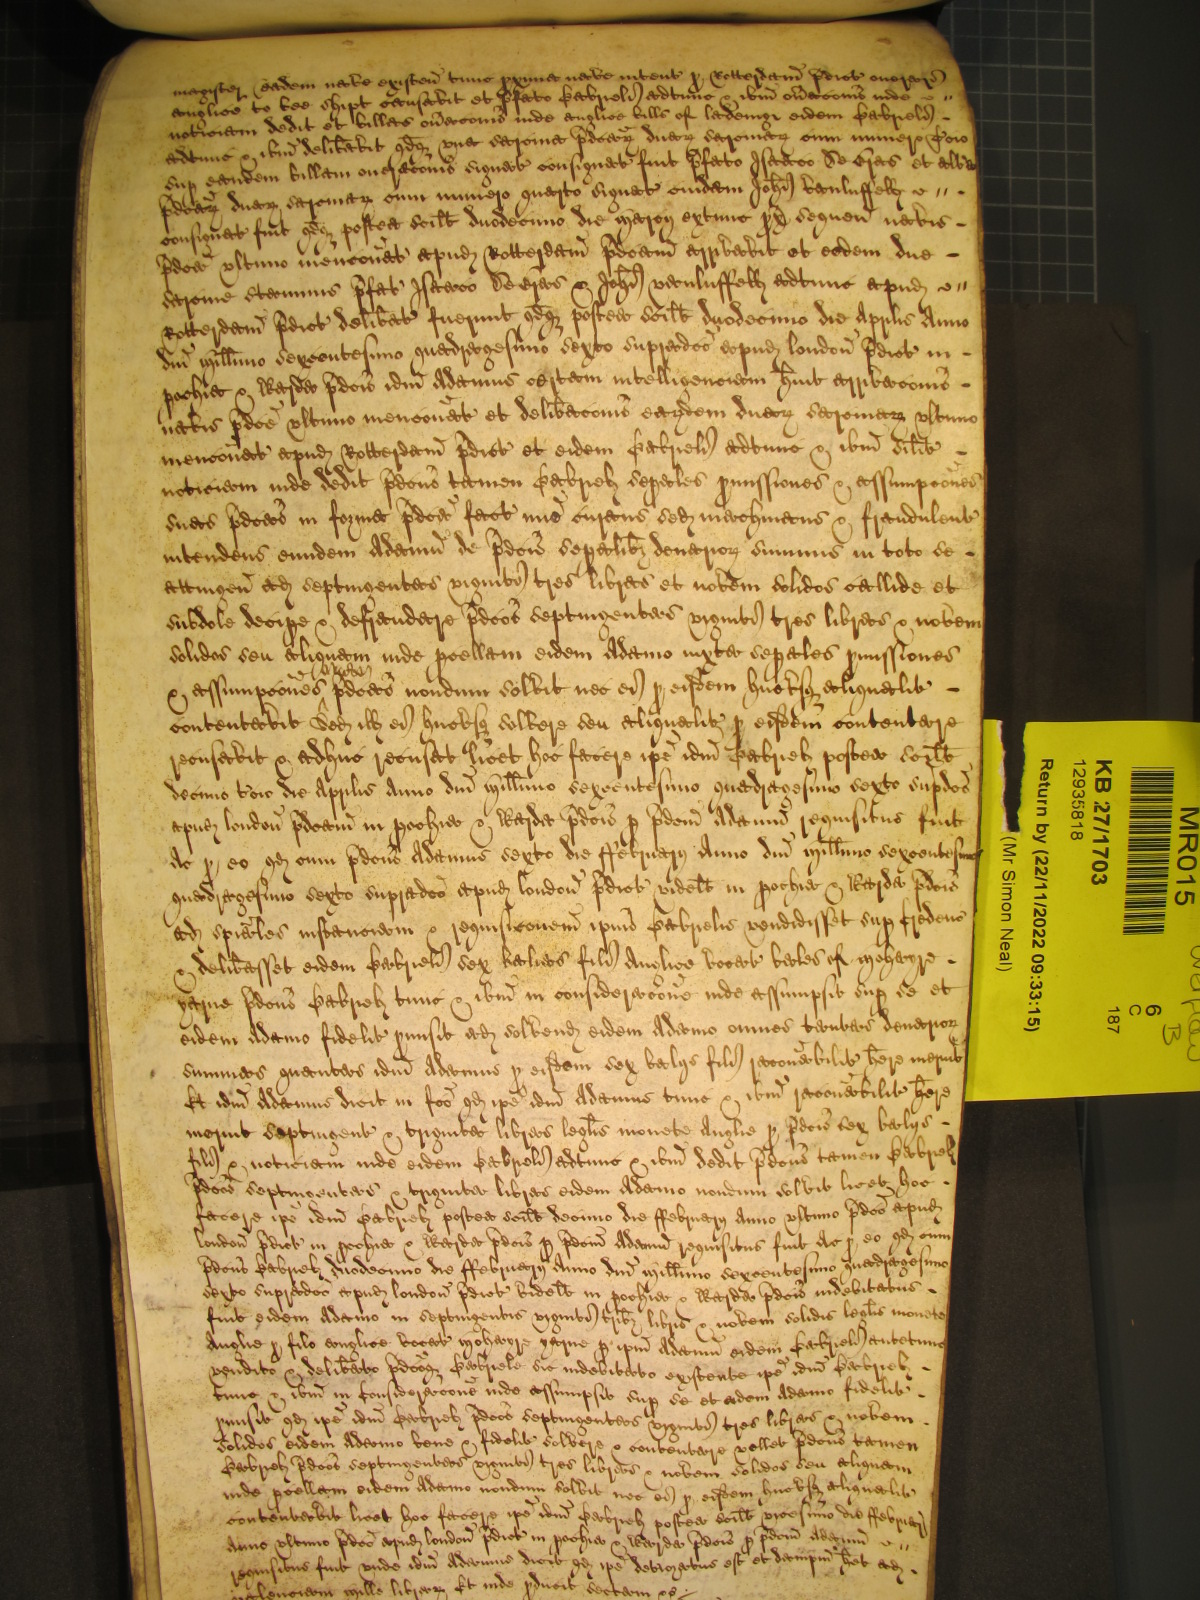 magister eadem nave existen tunc prima nave intent p Rotterdam pdict
anglice to bee shipt causabit et pfato Gabrieli adtunc & ibm inde
noticiam dedit et billas inde anglice bills of ladeinge eidem Gabrieli
adtunc & ibm delibavit qdq una sarcina pdcar duar sarcinar cum numero
sup eandem billam oneracois signat consignat fuit pfato Isaaco et altera
pdcar duar sarcinar cum numero quarto signat cuidam Johi vanluffell
consignat fuit qdq postea scilt duodecimo die marcij extunc px sequen navis
pdca ultimo mencoat apud Rotterdam pdcam arribabit et eedem due
sarcine pfat Isaaco & Johi vanluffell adtunc apud
Rotterdam pdict delibat fuerunt qdq postea scilt duodecimo die Aprilis Anno
dni millimo sexcentesimo quadragesimo sexto supradco apud london pdict in
pochia & Warda pdcis idm Adamus certam intelligenciam huit arribacois
navis pdce ultimo mencoat et delibacois earudem duar sarcinar ultimo
mencoat apud Rotterdam pdict et eidem Gabrieli adtunc & ibm
noticiam inde dedit pdcus tamen Gabriel sepales pmissiones & assumpcoes
suas pdcas in forma pdca fact mie curans sed machinans & fraudulent
intendens eundem Adamu de pdcis sepalibz denarior summis in toto se
attingen ad septingentas viginti tres libras et novem solidos callide et
subdole decipe & defraudare pdcas septingentas viginti tres libras & novem
solidos seu aliquam inde pcellam eidem Adamo iuxta sepales pmissiones
& assumpcoes pdcas nondum solvit nec ei p eisdem hucusq aliqualit
contentavit Sed ill ei hucusq solvere seu aliqualit p eisdem contentare
recusavit & adhuc recusat licet hoc facere ipe idm Gabriel postea scilt
decimo die Aprilis Anno dni millimo sexcentesimo quadragesimo sexto supdco
apud london pdcam in pochia & Warda pdcis p pdcm Adamu requisitus fuit
Ac p eo qd cum pdcus Adamus sexto die ffebruarij Anno dni millimo sexcentesimo
quadragesimo sexto supradco apud london pdict videlt in pochia & Warda pdcis
ad spiales instanciam & requisicionem ipius Gabrielis vendidisset sup credenc
& delibasset eidem Gabrieli sex balias fili Anglice vocat bales of mohayre
yarne pdcus Gabriel tunc & ibm in consideracoe inde assumpsit sup se et
eidem Adamo fidelit pmisit ad solvend eidem Adamo omnes tantas denarior
summas quantas idm Adamus p eisdem sex balijs fili racionabilit here meruit
Et idm Adamus dicit in fco qd ipe idm Adamus tunc & ibm racionabilit here
meruit septingent & triginta libras legalis monete Anglie p pdcis sex balijs
fili & noticiam inde eidem Gabrieli adtunc & ibm dedit pdcus tamen Gabriel
pdcas septingentas & triginta libras eidem Adamo nondum solvit licet hoc
facere ipe idm Gabriel postea scilt decimo die ffebruarij Anno ultimo pdco apud
london pdict in pochia & Warda pdcis p pdcm Adamu requisitus fuit Ac p eo qd cum
pdcus Gabriel duodecimo die ffebruarij Anno dni millimo sexcentesimo quadragesimo
sexto supradco apud london pdict videlt in pochia & Warda pdcis indebitatus
fuit eidem Adamo in septingentis viginti tribz libris & novem solidis legalis monete
Anglie p filo anglice vocat mohayre yarne p ipm Adamu eidem Gabrieli antetunc
vendito & delibato pdcoq Gabriele sic indebitato existente ipe idm Gabriel
tunc & ibm in consideracone inde assumpsit sup se et eidem Adamo fidelit
pmisit qd ipe idm Gabriel pdcas septingentas viginti tres libras & novem
solidos eidem Adamo bene & fidelit solvere & contentare vellet pdcus tamen
Gabriel pdcas septingentas viginti tres libras & novem solidos seu aliquam
inde pcellam eidem Adamo nondum solvit nec ei p eisdem hucusq aliqualit
contentavit licet hoc facere ipe idm Gabriel postea scilt vicesimo die ffebruarij
Anno ultimo pdco apud london pdict in pochia & Warda pdcis p pdcm Adamu
requisitus fuit unde idm Adamus dicit qd ipe deterioratus est et dampnu het ad
valenciam mille librar Et inde pducit sectam &c
MR015
KB 27/1703
12935818
Return by (22/11/2022 09:33:15)
(Mr Simon Neal)
6
C
187
B